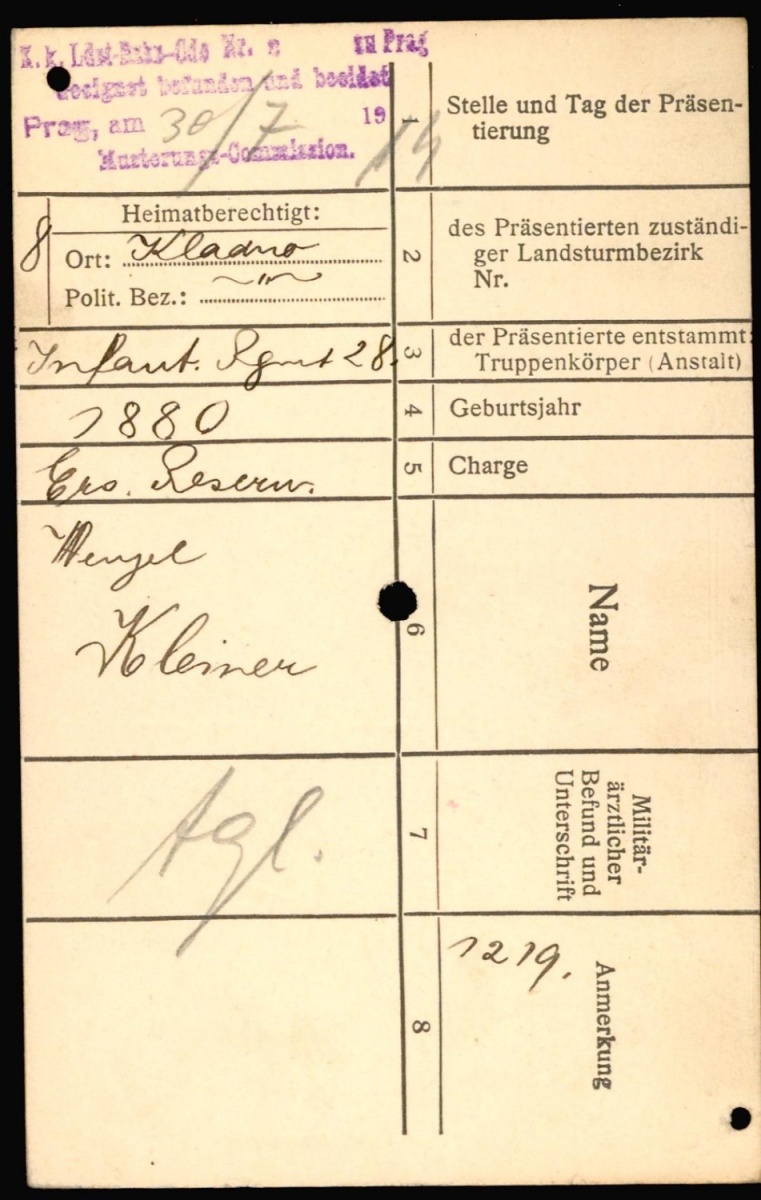 K. k. Ldst-Bzks-Cdo Nr. zu Prag
geeignet befunden und beeidet
Prag, am 30/7 1914
Musterungs-Commission.
1
Stelle und Tag der Präsen-
tierung
8
Heimatberechtigt:
Ort: Kladno
Polit. Bez.: ~"~
2
des Präsentierten zuständi-
ger Landsturmbezirk
Nr.
Infant. Rgmt 28.
3
der Präsentierte entstammt:
Truppenkörper (Anstalt)
1880
4
Geburtsjahr
Ers. Reserv.
5
Charge
Wenzel
Kleiner
6
Name
Tgl.
7
Militär-
ärztlicher
Befund und
Unterschrift
8
1219.
Anmerkung